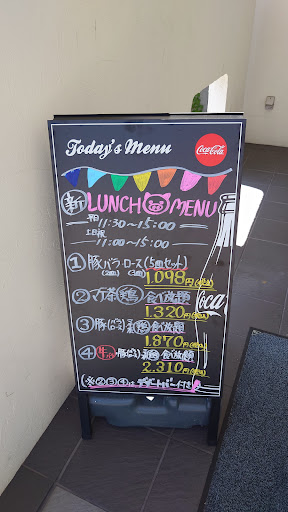 Today's Menu
Coca-Cola
新 LUNCH MENU
平日 11:30〜15:00
土日祝 11:00〜15:00
① 豚バラ・ロース(5皿セット)
1.098円(税込)
②
鶏 食べ放題
1.320円(税込)
③ 豚
食べ放題
1.870円(税込)
④ 牛
食べ放題
2.310円(税込)
Coca
②③④は
付き